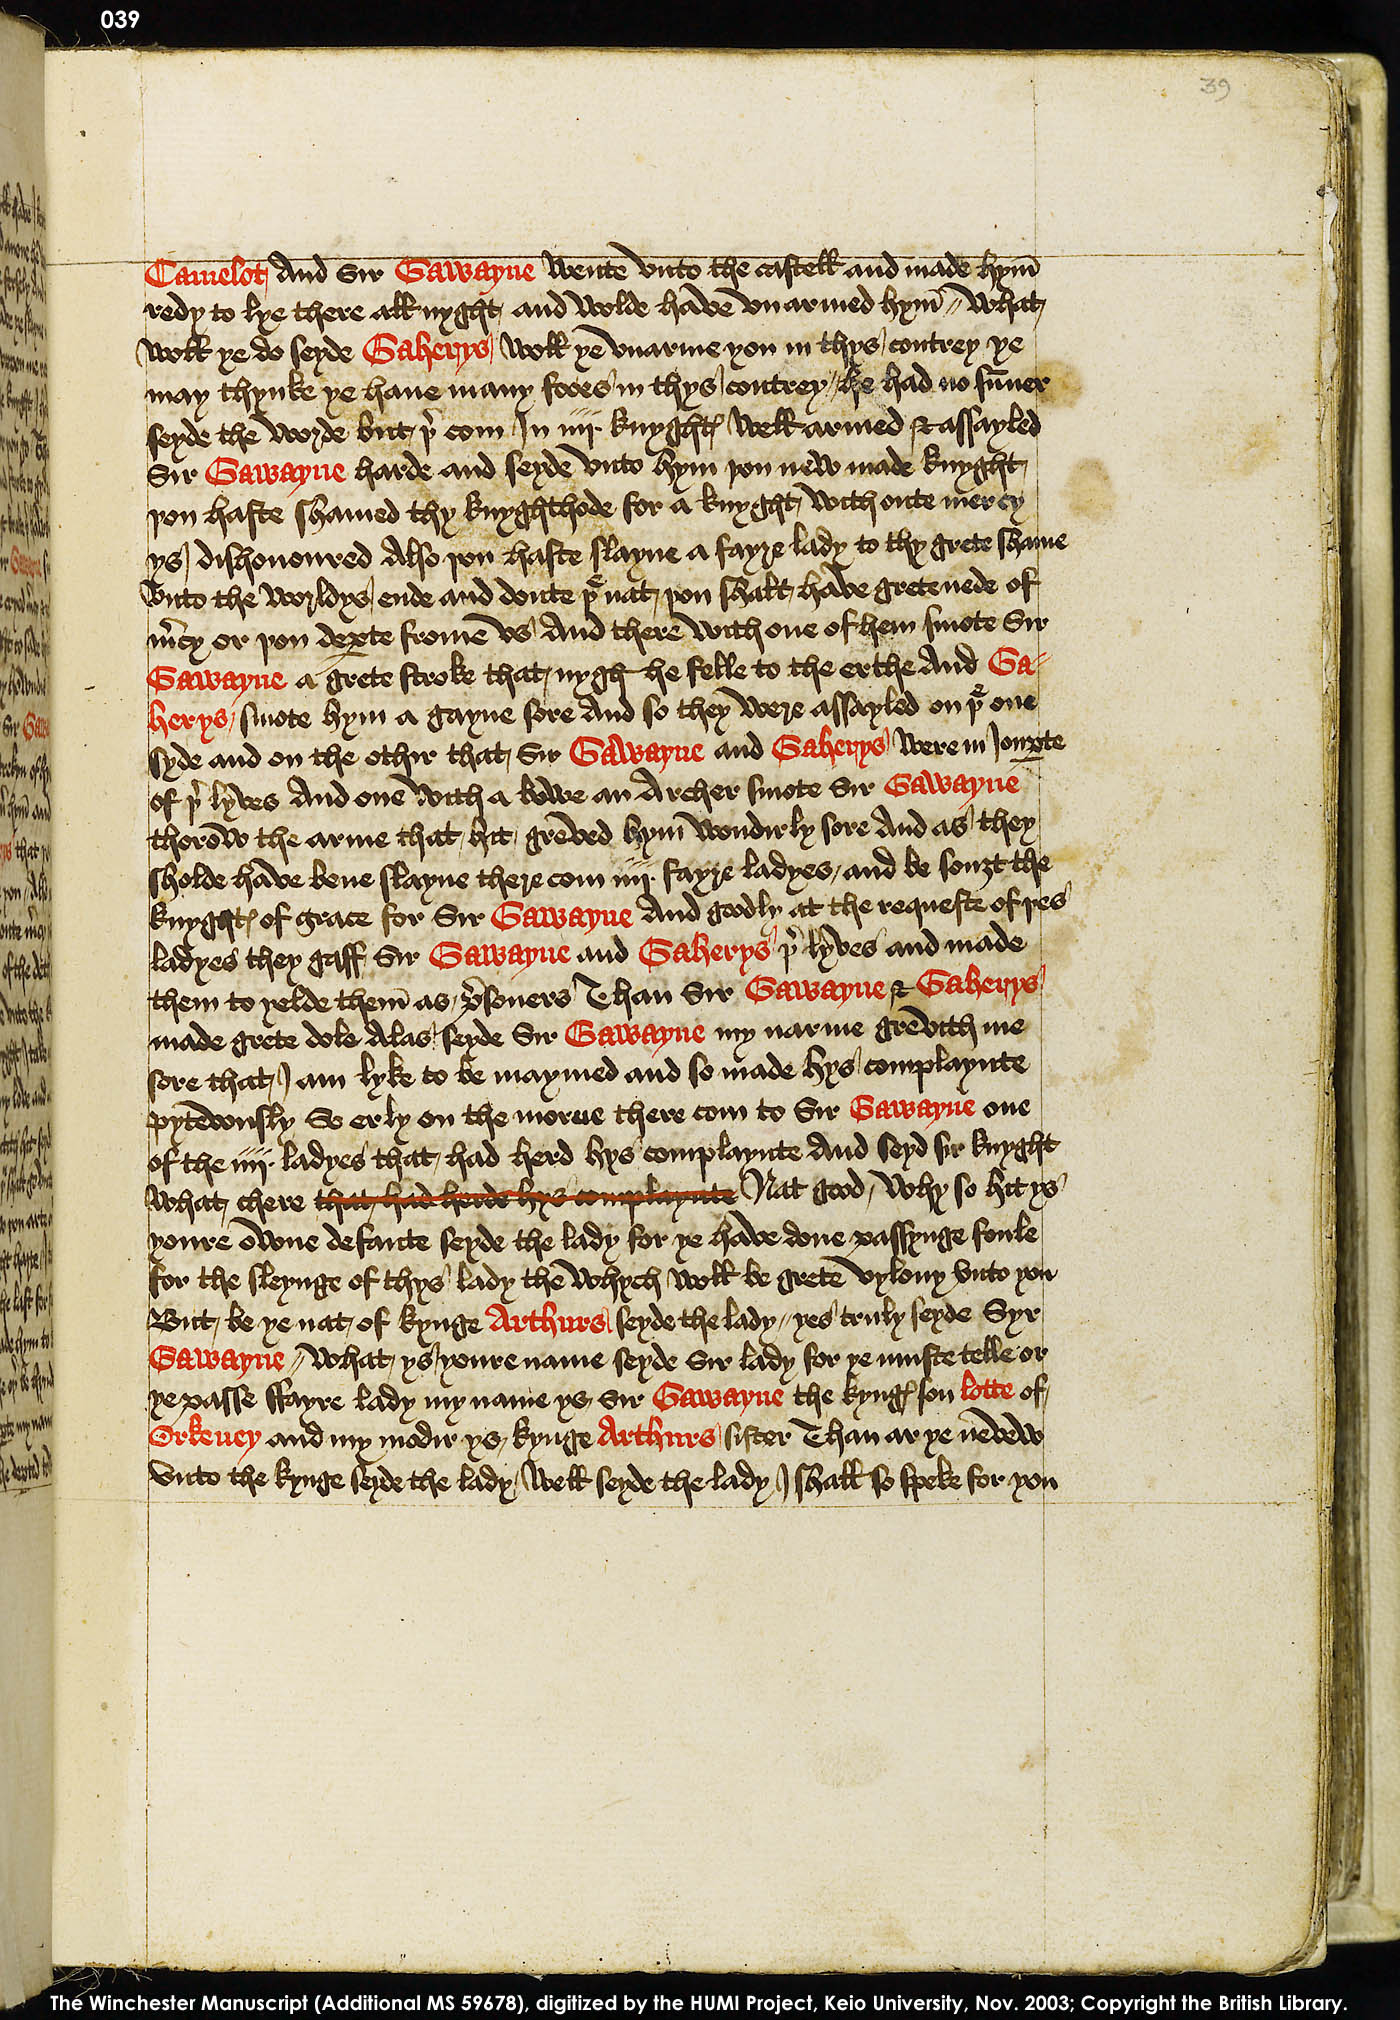 039
39
Camelot And Sir Gawayne wente vnto the castell and made hym̄
redy to lye there all nyght and wolde have vnarmed hym̄ // What
woll ye do seyde Gaherys woll ye vnarme you in thys contrey ye
may thynke ye haue many fooes in thys contrey / he had no sūner
seyde the worde but þͬ com In iiij. knyghtꝭ well armed & assayled
Sir Gawayne harde and seyde vnto hym þou new made knyght
þou haste shamed thy knyghthode for a knyght with oute mercy
ys dishonoured Also þou haste slayne a fayre lady to thy grete shame
Vnto the worldys ende and doute þͤ nat þou shalt have grete nede of
m̄cy or þou dep̱te frome vs And there with one of hem smote Sir
Gawayne a grete stroke that nygh he felle to the erthe And Ga-
herys smote hym a gayne sore And so they were assayled on þͤ one
syde and on the othir that Sir Gawayne and Gaherys were in Joup̱te
of þͬ lyves And one with a bowe an Archer smote Sir Gawayne
thorow the arme that hit greved hym̄ wondirly sore And as they
sholde have bene slayne there com iiij. fayre ladyes and be souȝt the
knyghtꝭ of grace for Sir Gawayne And goodly at the requeste of þes
ladyes they gaff Sir Gawayne and Gaherys þͬ lyves and made
them to yelde them̄ as p̄soners Than Sir Gawayne & Gaherys
made grete dole Alas seyde Sir Gawayne my narme grevith me
sore that I am lyke to be maymed and so made hys complaynte
pytewously So erly on the morue there com to Sir Gawayne one
of the iiij. ladyes that had herd hys complaynte And seyd sir knyght
what chere that had herde hys complaynte Nat good / Why so hit ys
youre owne defaute seyde the lady for ye have done passynge foule
for the sleynge of thys lady the whych woll be grete vylony vnto you
But be ye nat of kynge Arthurs seyde the lady // yes truly seyde Syr
Gawayne // What ys youre name seyde Sir lady for ye muste telle or
ye passe ffayre lady my name ys Sir Gawayne the kyngꝭ son lotte of
Orkeney and my modir ys kynge Arthurs sister Than ar ye nevew
vnto the kynge seyde the lady / Well seyde the lady I shall so speke for you
The Winchester Manuscript (Additional MS 59678), digitized by the HUMI Project, Keio University, Nov. 2003; Copyright the British Library.